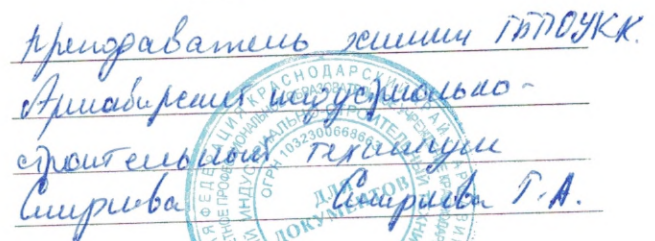 преподаватель химии ГБПОУКК.
Армавирский индустриально-
строительный техникум
Смирнова Смирнова Г.А.
КРАСНОДАРСКИЙ КРАЙ
ОГРН 1032300668
ДЛЯ
ДОКУМЕНТОВ